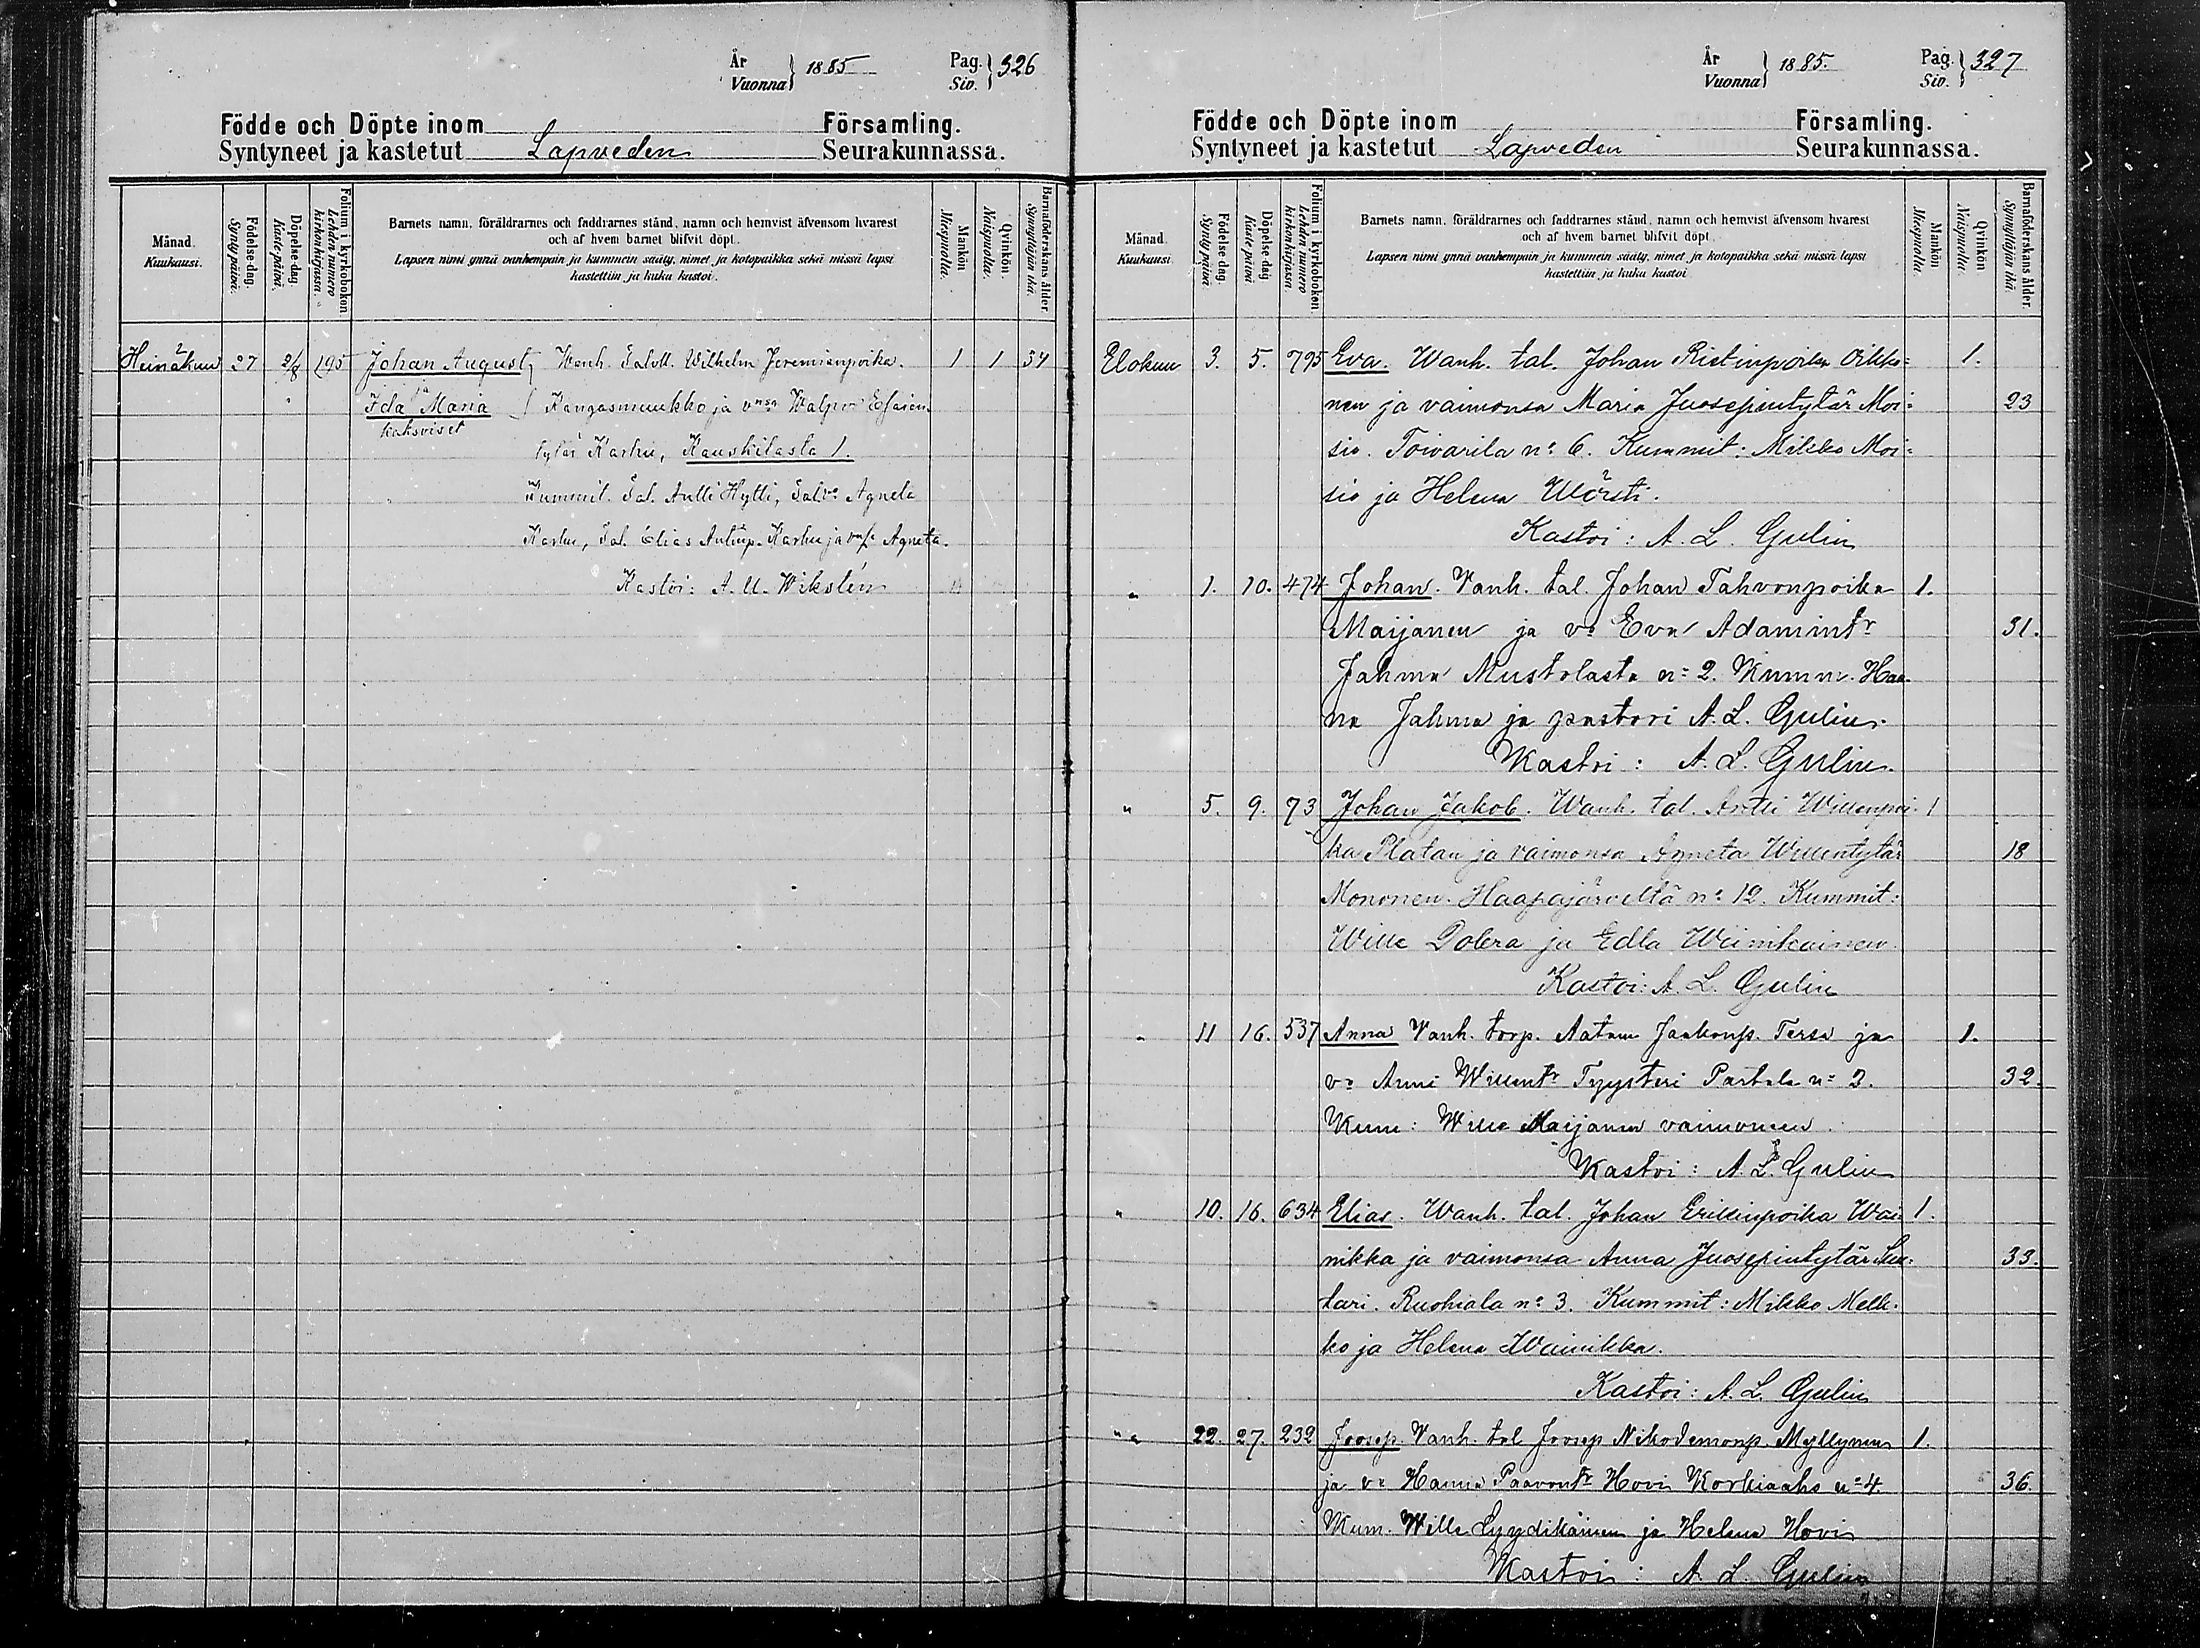 År
Vuonna } 1885
Pag.
Siv. } 326
Födde och Döpte inom Församling.
Syntyneet ja kastetut Lapveden Seurakunnassa.
Månad. Kuukausi.
Födelse-dag. Syntypäivä.
Döpelse-dag. Kastepäivä.
Folium i kyrkoboken Lehden numero kirkonkirjassa.
Barnets namn, föräldrarnes och faddrarnes stånd, namn och hemvist äfvensom hvarest
och af hvem barnet blifvit döpt.
Lapsen nimi ynnä vanhempain ja kummein sääty, nimet ja kotopaikka sekä missä lapsi
kastettiin ja kuka kastoi.
Mankön Miespuolia.
Qvinkön Naispuolia.
Barnaföderskans ålder. Synnyttäjän ikä.
Heinäkuu 27 2/8 195 Johan August Wanh. Wilhelm Jeremianpoika 1 1 34
ja
Ida Maria Kangasmuukko ja Walpuri Esaian
kaksoiset
tytär Karhu, Kauskilasta 1.
Kummit. Tal. Antti Hytti, Agneta
Karhu, Tal. Elias Antinp. Karhu ja Agneta.
Kastoi: A. U. Wikstén
År
Vuonna } 1885.
Pag.
Siv. } 327
Födde och Döpte inom Församling.
Syntyneet ja kastetut Lapveden Seurakunnassa.
Månad. Kuukausi
Födelse dag. Syntypäivä.
Döpelse dag Kastepäivä
Folium i kyrkoboken Lehden numero kirkonkirjassa
Barnets namn, föräldrarnes och faddrarnes stånd, namn och hemvist äfvensom hvarest
och af hvem barnet blifvit döpt.
Lapsen nimi ynnä vanhempain ja kummein sääty, nimet ja kotopaikka sekä missä lapsi
kastettiin ja kuka kastoi
Mankön Miespuolia.
Qvinkön Naispuolia.
Barnaföderskans ålder. Synnyttäjän ikä.
Elokuu 3. 5. 795 Eva. Wanh. tal. Johan Ristinpoika Oikko= 1.
nen ja vaimonsa Maria Juosepintytär Moi= 23
sio. Toivarila n:o 6. Kummit: Mikko Moi=
sio ja Helena Wörsti.
Kastoi: A. L. Gulin
" 1. 10. 474 Johan. Vanh. tal. Johan Tahvonpoika 1.
Maijanen ja v:o Eva Adamintr 31.
Jahma Mustolasta n:o 2. Kumm. Han-
na Jahma ja pastori A. L. Gulin.
Kastoi: A. L. Gulin.
" 5. 9. 73 Johan Jakob. Wanh. tal. Antti Willenpoi- 1
ka Platan ja vaimonsa Agneta Willentytär 18
Mononen. Haapajärveltä n:o 12. Kummit:
Wille Dolera ja Edla Wiinikainen
Kastoi: A. L. Gulin
" 11 16. 537 Anna Vanh. torp. Aatam Jaakonp. Tersa ja 1.
v:o Anni Willentr Tyysteri Partala n:o 2. 32.
Kum: Wille Maijanen vaimoineen.
Kastoi: A. L. Gulin
" 10. 16. 634 Elias. Wanh. tal. Johan Erikinpoika Wai- 1.
nikka ja vaimonsa Anna Juosepintytär Sun- 33.
tari. Ruohiala n:o 3. Kummit: Mikko Melk-
ko ja Helena Wainikka.
Kastoi: A. L. Gulin
" 22. 27. 232 Joosep. Vanh. tal Joosep Nikodemonp. Myllynen 1.
ja v:o Hanna Paavontr Hovi Korkiaaho n:o 4. 36.
Kum. Wille Lyydikäinen ja Helena Hovi
Kastoi: A. L. Gulin